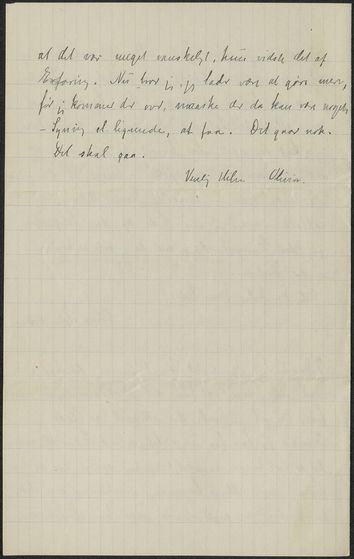 at det var meget vanskeligt, hun vidste det af
Erfaring. Nu tror jeg, jeg lader være at gøre mere,
før jeg kommer der ovr, maaske der da kan være noget
– Syning el lignende, at faa. Det gaar nok.
Det skal gaa.
Venlig Hilsn Olivia.